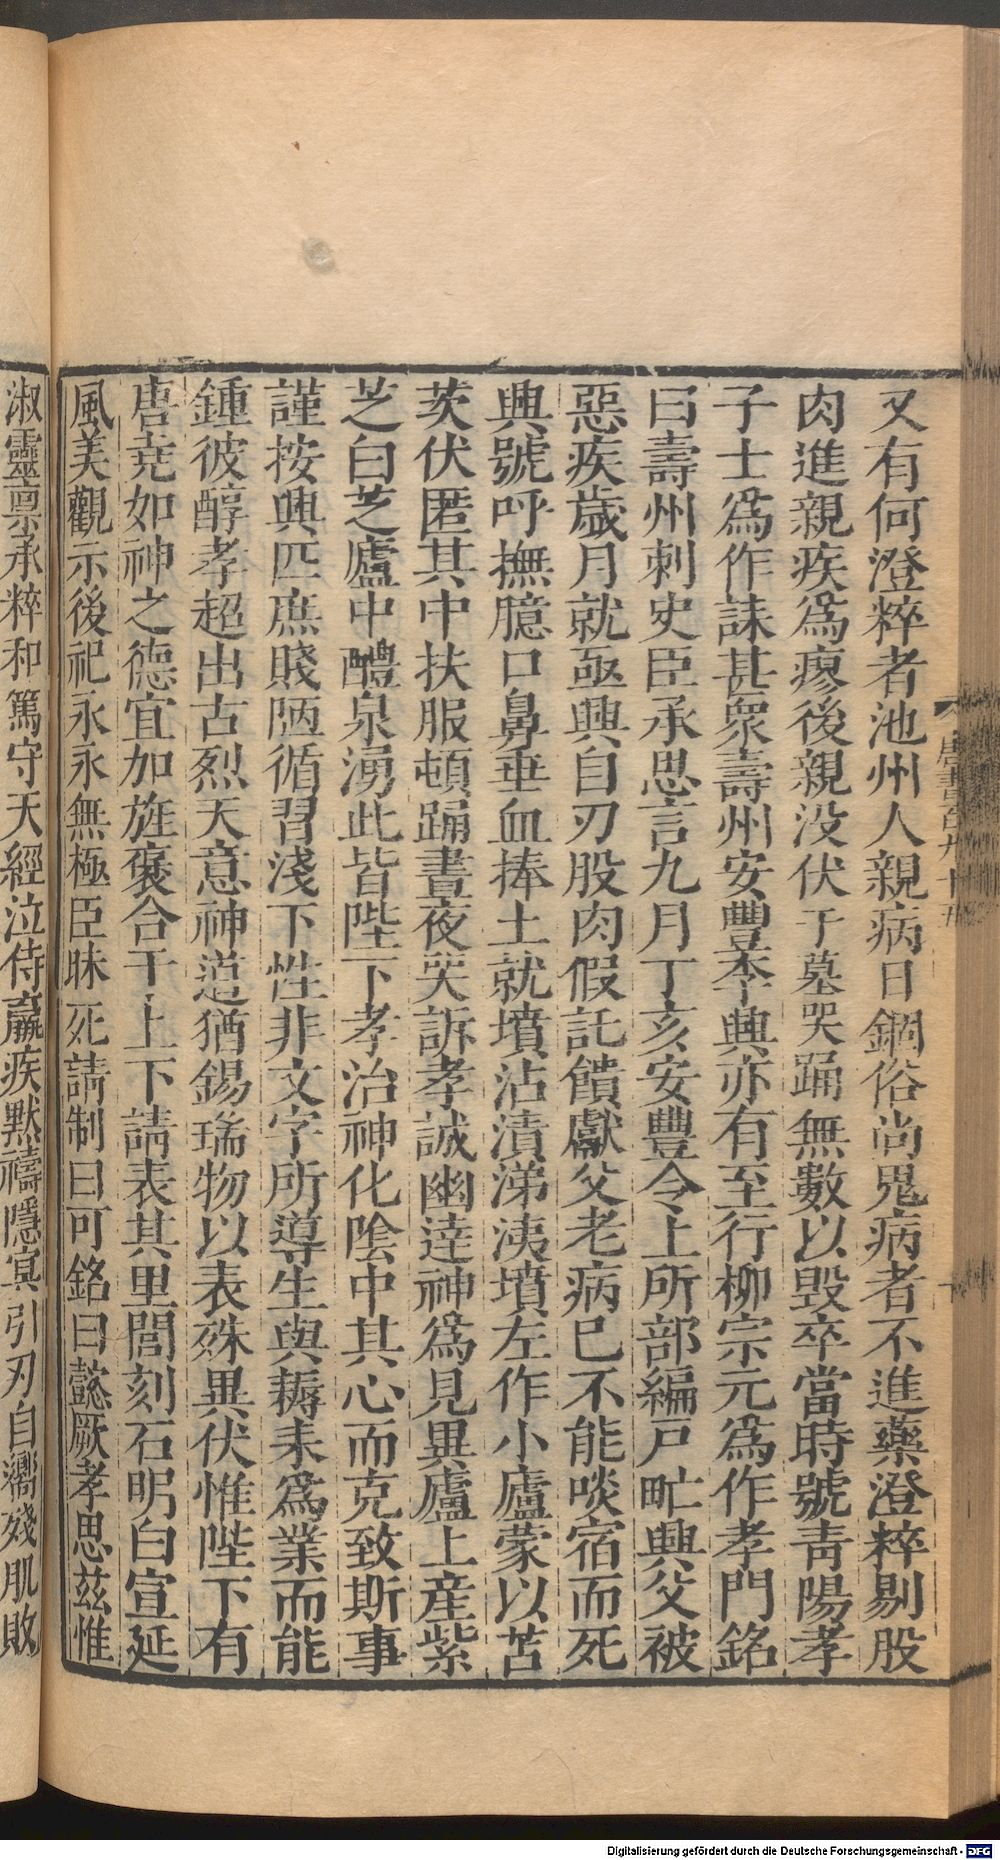 又有何澄粹者池州人親病日錮俗尚鬼病者不進藥澄粹剔股
肉進親疾爲瘳後親没伏于墓哭踊無數以毁卒當時號靑陽孝
子士爲作誄甚衆壽州安豐李興亦有至行柳宗元爲作孝門銘
曰壽州刺史臣承思言九月丁亥安豐令上所部編戸甿興父被
惡疾歲月就亟興自刃股肉假託饋獻父老病巳不能啖宿而死
興號呼撫臆口鼻垂血捧土就墳沾漬涕洟墳左作小廬蒙以苫
茨伏匿其中扶服頓踊晝夜哭訴孝誠幽逹神爲見異廬上産紫
芝白芝廬中醴泉湧此皆陛下孝治神化陰中其心而克致斯事
謹按興匹庶賤陋循習淺下性非文字所導生與耨耒爲業而能
鍾彼醇孝超出古烈天意神道猶錫瑞物以表殊異伏惟陛下有
唐堯如神之德宜加旌襃合于上下請表其里閭刻石明白宣延
風美觀示後祀永永無極臣昧死請制曰可銘曰懿厥孝思茲惟
淑靈禀承粹和篤守天經泣侍羸疾默禱隱冥引刃自嚮殘肌敗
唐書百九十五
Digitalisierung gefördert durch die Deutsche Forschungsgemeinschaft - DFG